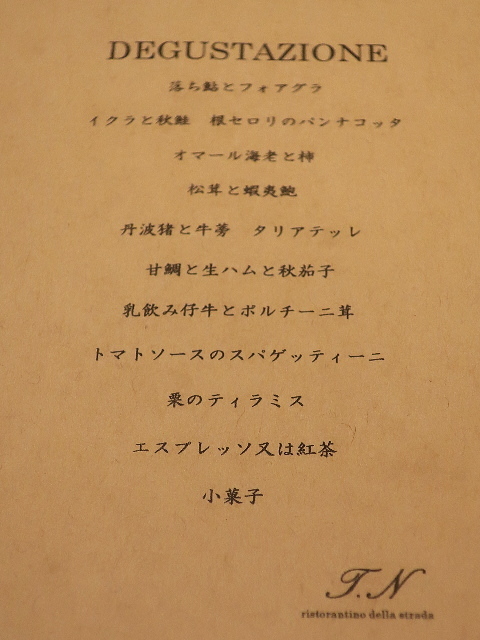 DEGUSTAZIONE
落ち鮎とフォアグラ
イクラと秋鮭　根セロリのパンナコッタ
オマール海老と柿
松茸と蝦夷鮑
丹波猪と牛蒡　タリアテッレ
甘鯛と生ハムと秋茄子
乳飲み仔牛とポルチーニ茸
トマトソースのスパゲッティーニ
栗のティラミス
エスプレッソ又は紅茶
小菓子
T.N
ristorantino della strada